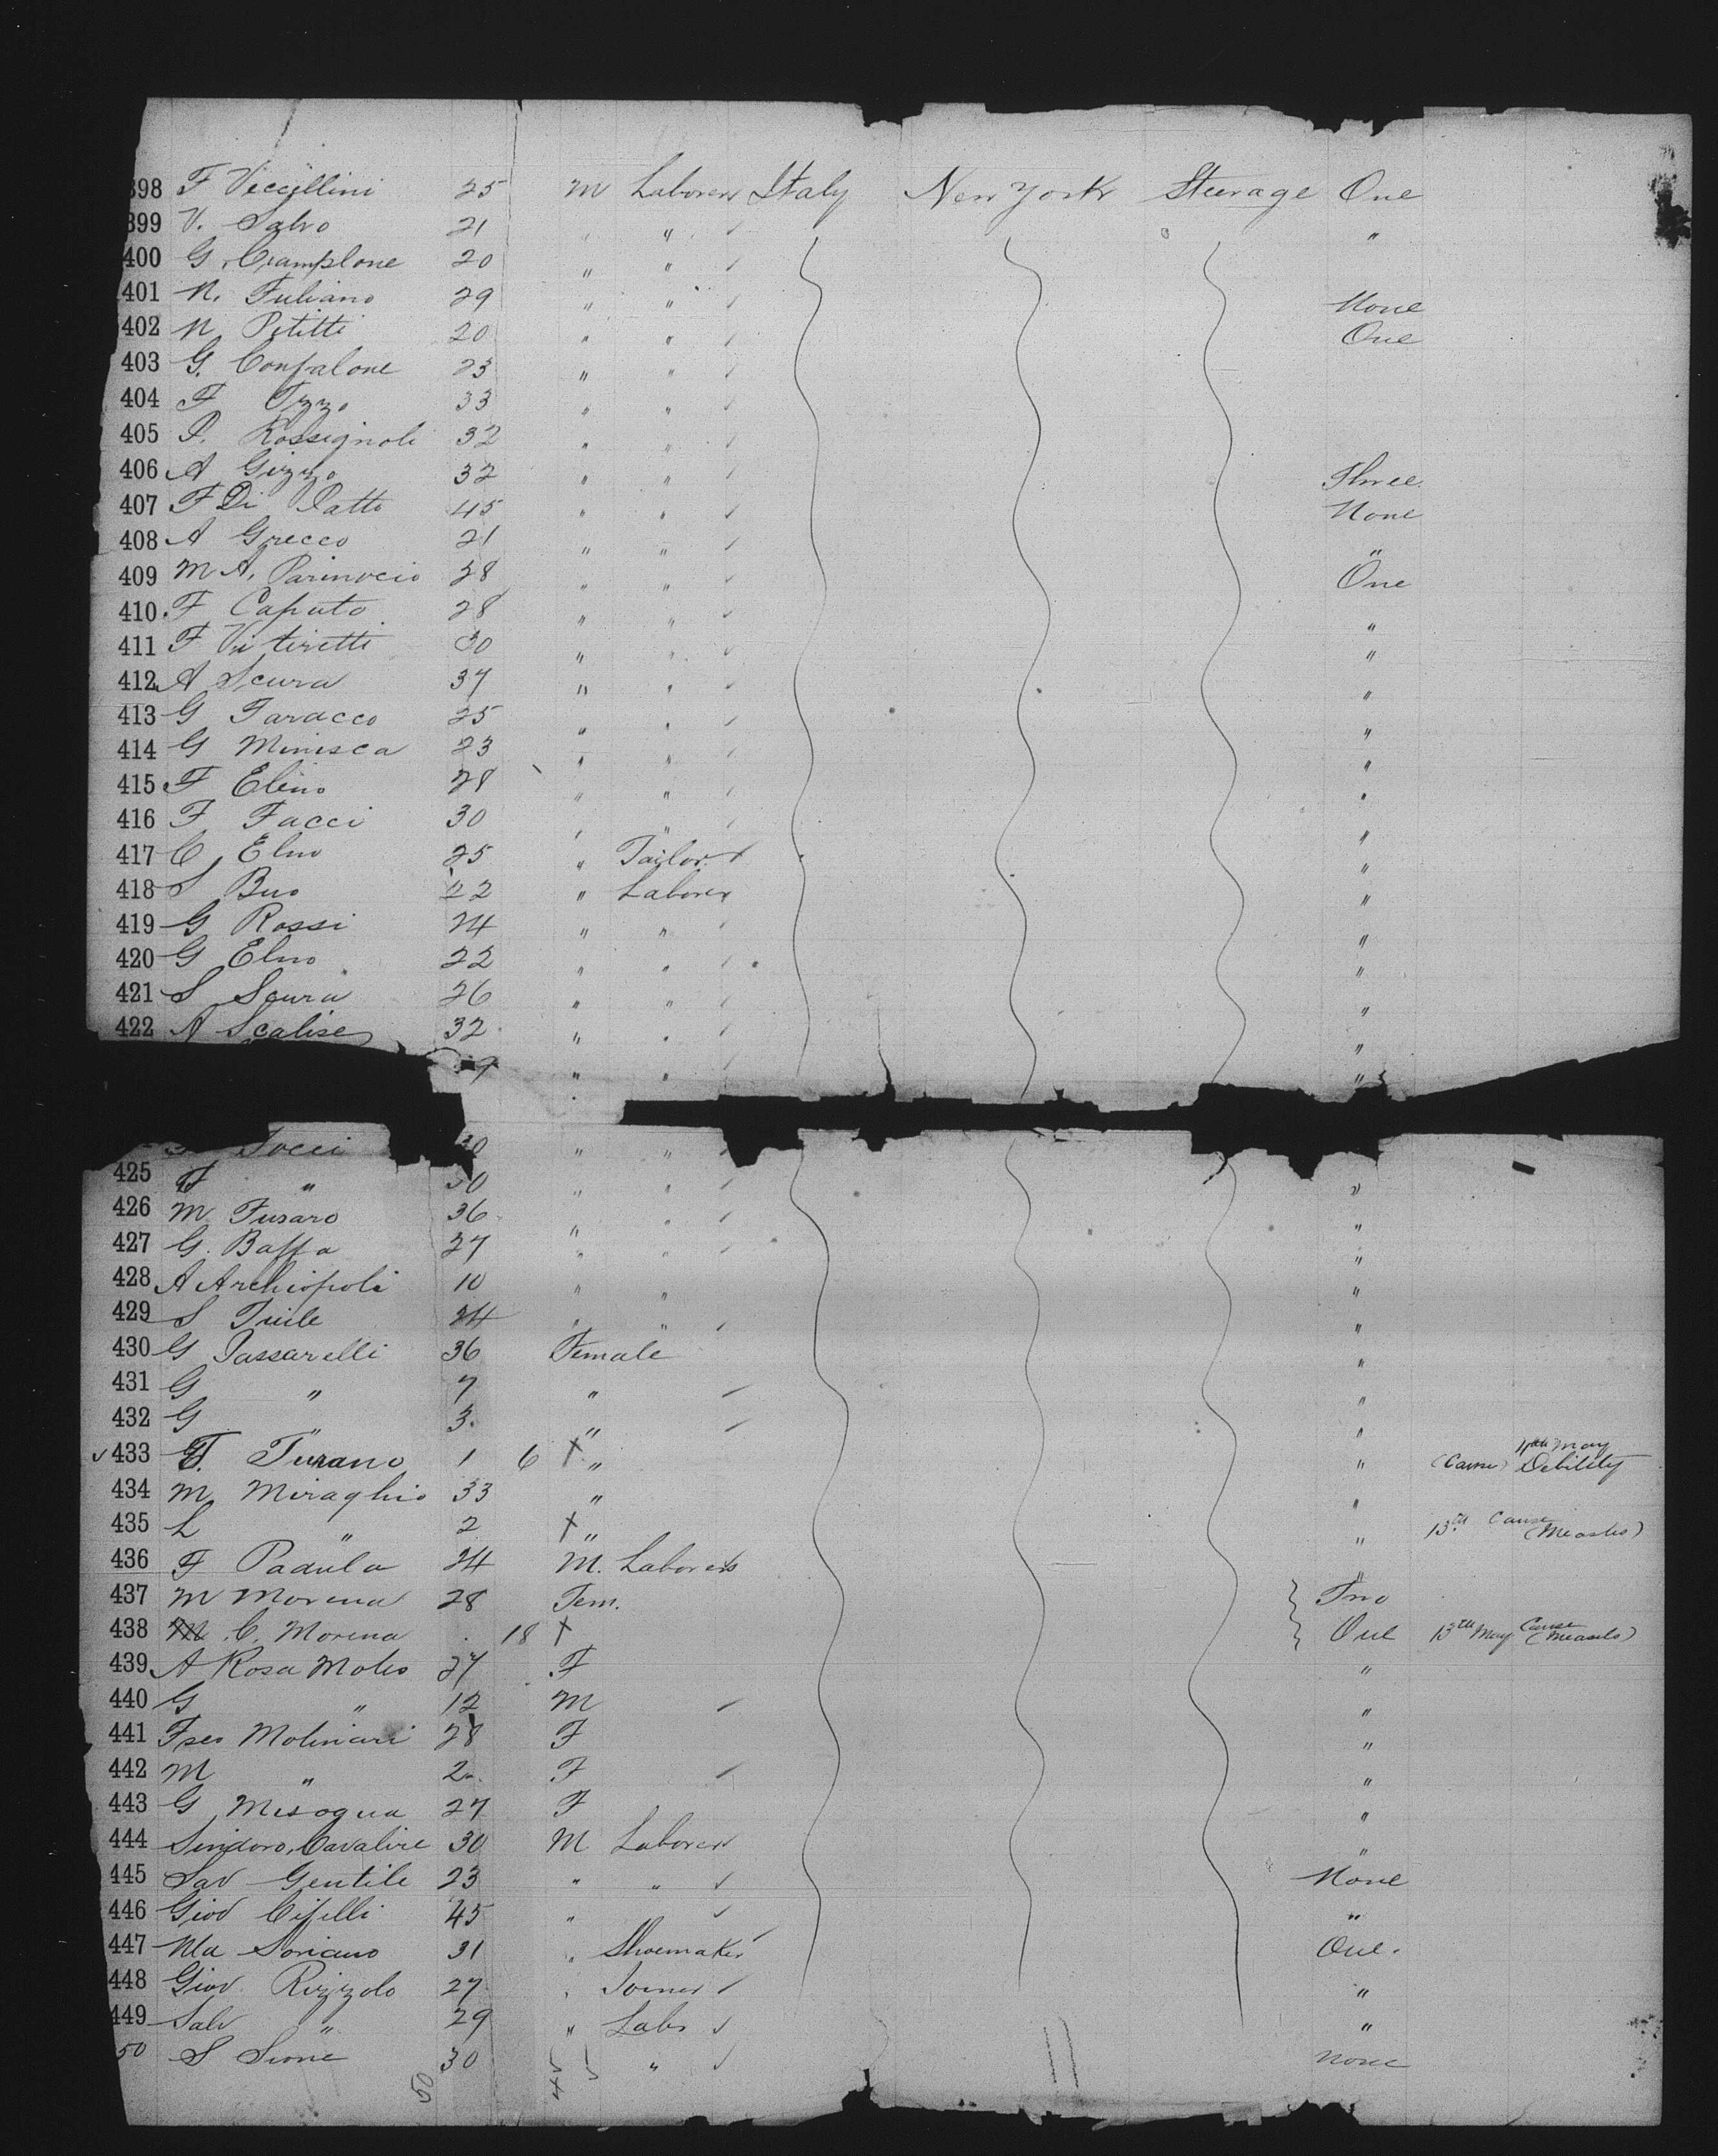 398 F Viccellini 25 M Laborer Italy New York Steerage One
399 V. Salvo 21 " " "
400 G. Cramplone 20 " "
401 N. Fuliano 29 " " None
402 N Petitti 20 " " One
403 G. Confalone 23 " "
404 F Izzo 33 " "
405 P. Rossignoli 32 " "
406 A Gizzo 32 " " Three
407 F Di Patto 45 " " None
408 A Grecco 21 " " "
409 M A. 28 " " One
410 F Caputo 28 " " "
411 F 30 " " "
412 A Scura 37 " " "
413 G Taracco 25 " " "
414 G Minisca 23 " " "
415 F Elino 28 " " "
416 F Facci 30 " " "
417 C Elmo 25 " Tailor "
418 S Buo 22 " Laborer "
419 G Rossi 24 " " "
420 G Elmo 22 " " "
421 S Scura 26 " " "
422 A Scalise 32 " " "
" " "
Tocci " "
425 F " 30 " " "
426 M Fusaro 36 " " "
427 G. Baffa 27 " " "
428 A Archiopoli 10 " " "
429 S 24 " " "
430 G Passarelli 36 Female "
431 G " 7 " "
432 G " 3. " "
433 F. Turano 1 6 † " " 11th May (Cause) Debility
434 M Miraghio 33 " "
435 L " 2 † " " 13th Cause (Measles)
436 F Padula 24 M. Laborer "
437 M Morena 28 Fem. Two
438 C. Morena 18 † One 13th May Cause (Measels)
439 A Rosa Moles 27 F "
440 G " 12 M "
441 Fses Molinari 28 F "
442 M " 2 F "
443 G Misogua 27 F "
444 Sindoro Cavalire 30 M Laborer "
445 Sav Gentile 23 " " None
446 Giov Cifelli 45 " "
447 Nla Soriano 31 " Shoemaker One.
448 Giov Rizzolo 27 " Joiner "
449 Salv " 29 " Labr "
50 S Sione 30 " None
50 45 5 11